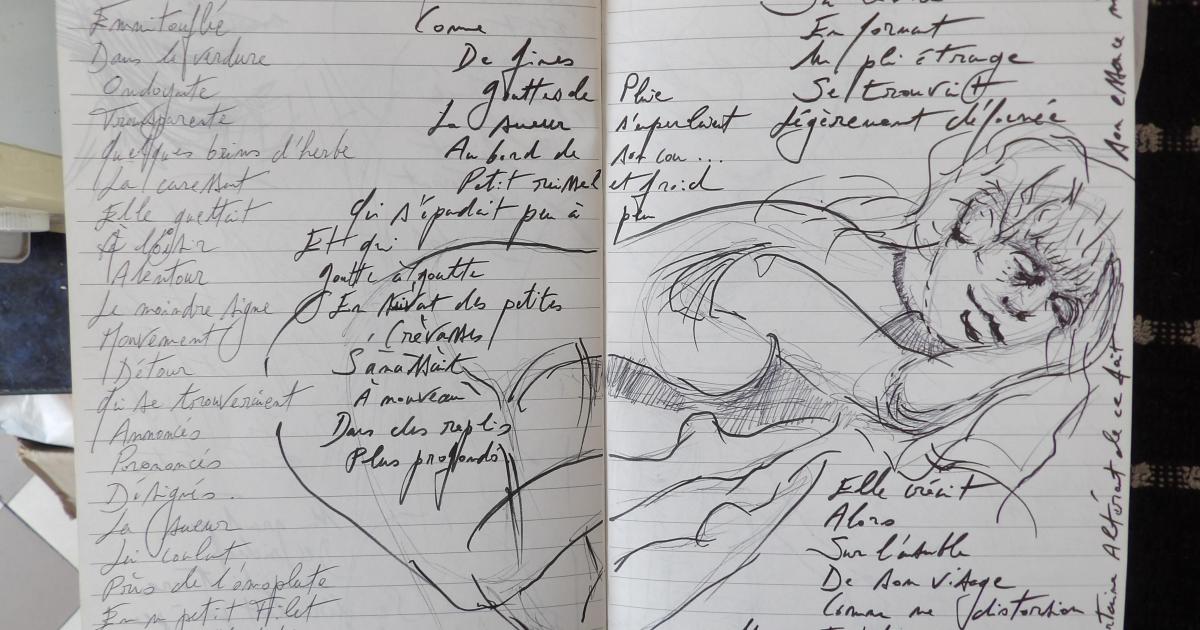 Emmitouflée
Dans la verdure
Ondoyante
Transparente
Quelques brins d'herbe
La caressent
Elle guettait
À loisir
Alentour
Le moindre signe
Mouvement
Détour
Qui se trouveraient
Annoncés
Prononcés
Désignés.
La sueur
Lui coulait
Près de l'omoplate
En un petit filet
Comme
De fines
gouttes de
La sueur
Au bord de
Petit
Qui s'épandait peu à
Et qui
goutte à goutte
En suivant des petites
Crevasses
S'amassait
À nouveau
Dans des replis
Plus profonds
Pluie
s'
son cou ...
et froid
peu
En formant
Un pli étrange
Se trouvait
Légèrement déformée
Elle créait
Alors
Sur l'ensemble
De son visage
Comme une distorsion
son essence
Altérant de ce fait